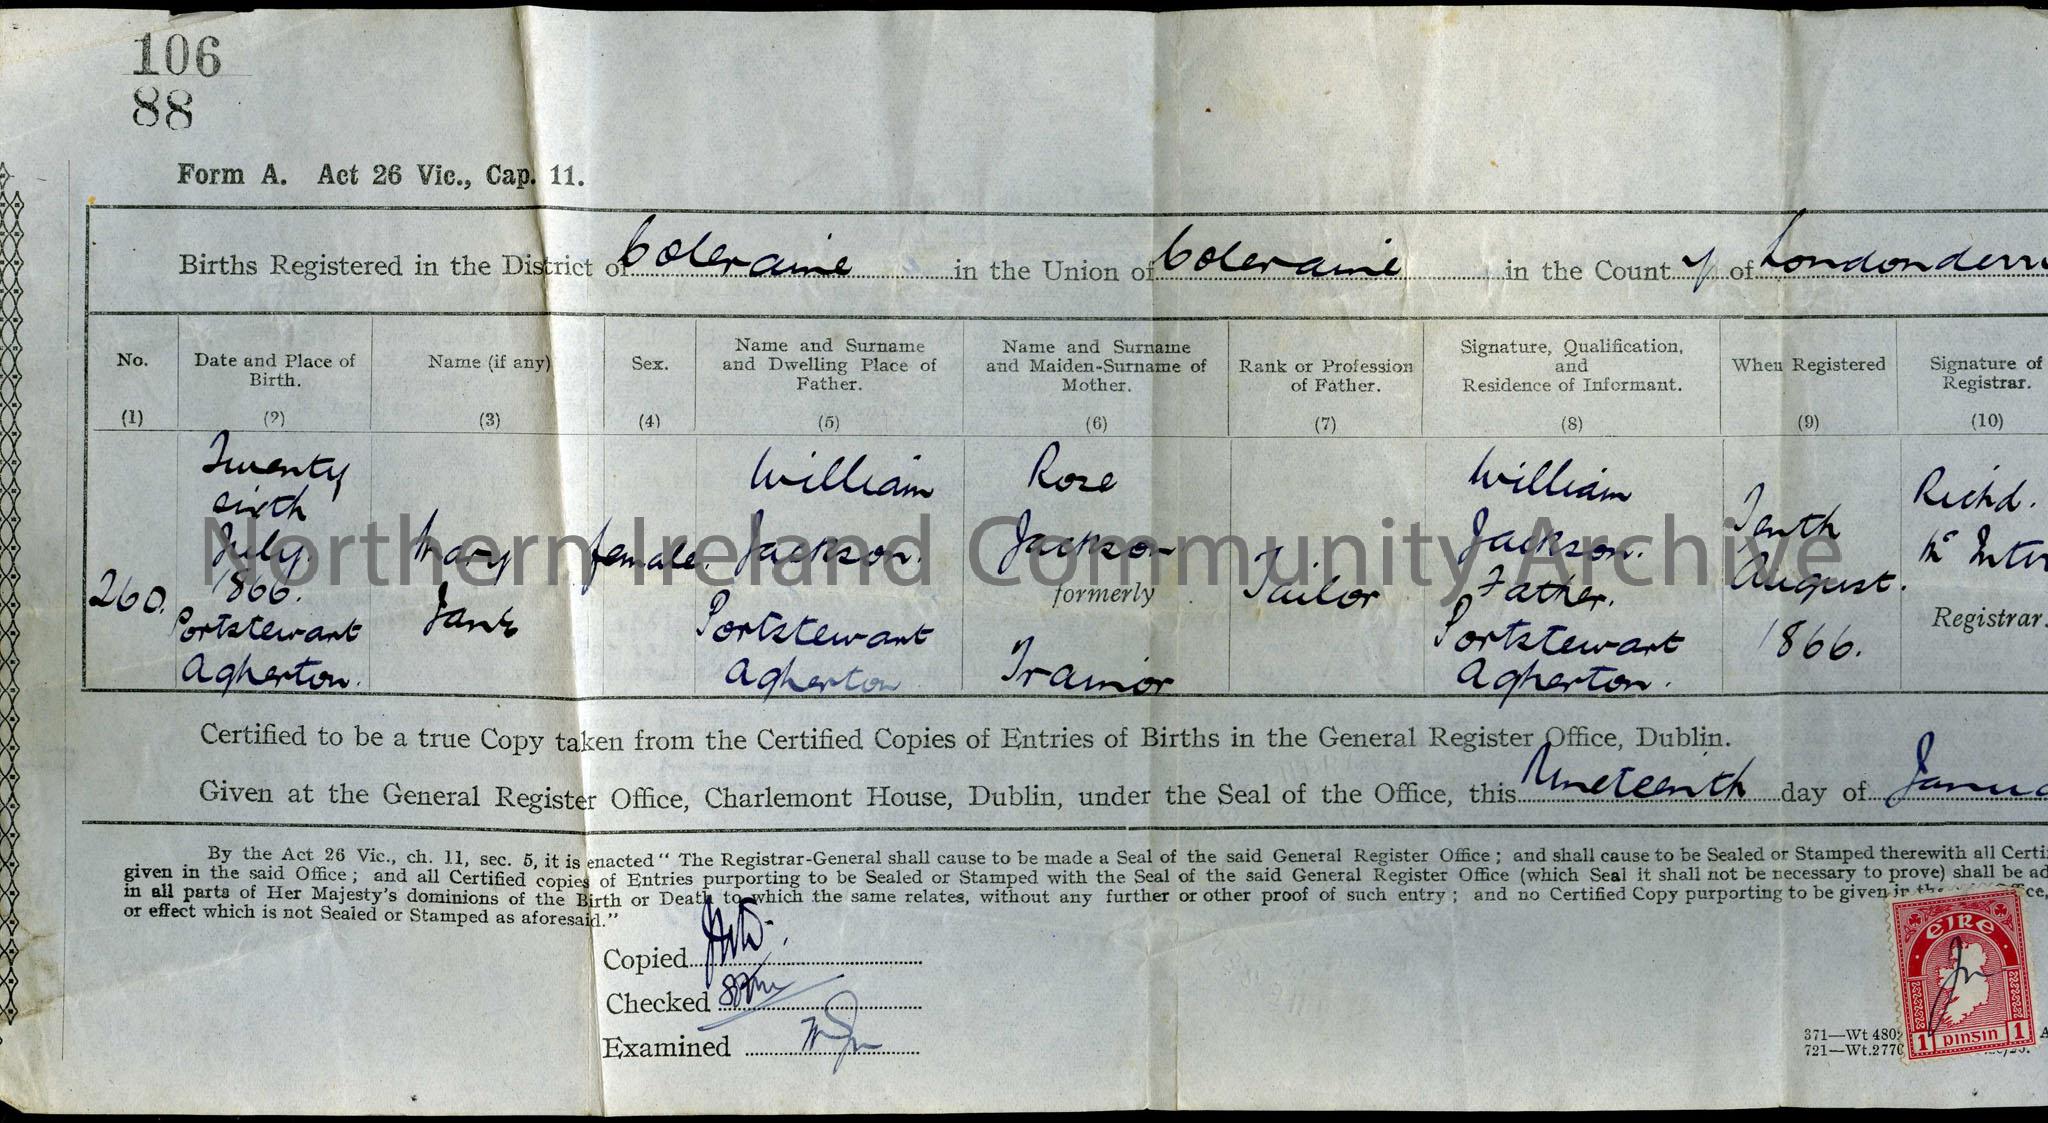 106
88
Form A. Act 26 Vic., Cap. 11.
Births Registered in the District of Coleraine in the Union of Coleraine in the County of Londonderr
No.
(1)
Date and Place of
Birth.
(2)
Name (if any)
(3)
Sex.
(4)
Name and Surname
and Dwelling Place of
Father.
(5)
Name and Surname
and Maiden-Surname of
Mother.
(6)
Rank or Profession
of Father.
(7)
Signature, Qualification,
and
Residence of Informant.
(8)
When Registered
(9)
Signature of
Registrar.
(10)
260.
Twenty
sixth
July.
1866.
Portstewart
Agherton.
Mary
Jane
female.
William
Jackson.
Portstewart
Agherton
Rose
Jackson
formerly
Trainor
Tailor
William
Jackson.
Father.
Portstewart
Agherton.
Tenth
August.
1866.
Richd.
Registrar.
Northern Ireland Community Archive
Certified to be a true Copy taken from the Certified Copies of Entries of Births in the General Register Office, Dublin.
Given at the General Register Office, Charlemont House, Dublin, under the Seal of the Office, this Nineteenth day of Janua
By the Act 26 Vic., ch. 11, sec. 5, it is enacted “ The Registrar-General shall cause to be made a Seal of the said General Register Office ; and shall cause to be Sealed or Stamped therewith all Certi
given in the said Office ; and all Certified copies of Entries purporting to be Sealed or Stamped with the Seal of the said General Register Office (which Seal it shall not be necessary to prove) shall be ad
in all parts of Her Majesty's dominions of the Birth or Death to which the same relates, without any further or other proof of such entry ; and no Certified Copy purporting to be given in the
or effect which is not Sealed or Stamped as aforesaid.”
Copied
Checked
Examined
ÉIRE
1 pinsin 1
371—Wt 480
721—Wt.2770